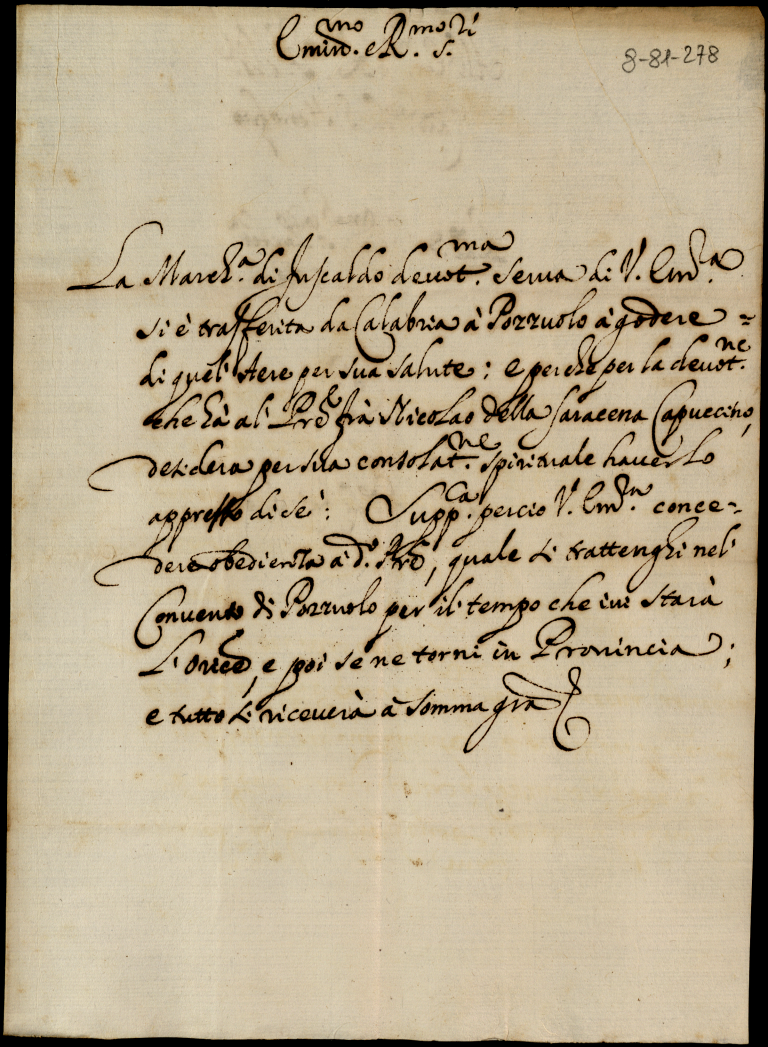 Emin.mo e R.mo S.ri
8-81-278
La March.a di Fuscaldo devot.ma serua di V. Em.a
si è trasferita da Calabria à Pozzuolo à godere =
di quell'Aere per sua salute; e perche per la devot.ne
che hà al Pre frà Nicolao della Saracena Capuccino,
desidera per sua consolat.ne spirituale hauerlo
appresso di sè: Supp.ca perciò V. Em.a conce=
dere obedienza à d.o Pre, quale si trattenghi nel
Convento di Pozzuolo per il tempo che iui starà
L'Orce, e poi se ne torni in Prouincia;
e tutto si riceuerà à somma gra